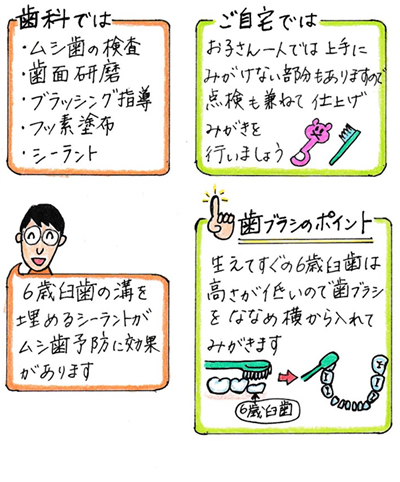 歯科では
・ムシ歯の検査
・歯面研磨
・ブラッシング指導
・フッ素塗布
・シーラント
ご自宅では
お子さん一人では上手に
みがけない部分もありますので
点検も兼ねて仕上げ
みがきを
行いましょう
6歳臼歯の溝を
埋めるシーラントが
ムシ歯予防に効果
があります
歯ブラシのポイント
生えてすぐの6歳臼歯は
高さが低いので歯ブラシ
をななめ横から入れて
みがきます
6歳臼歯